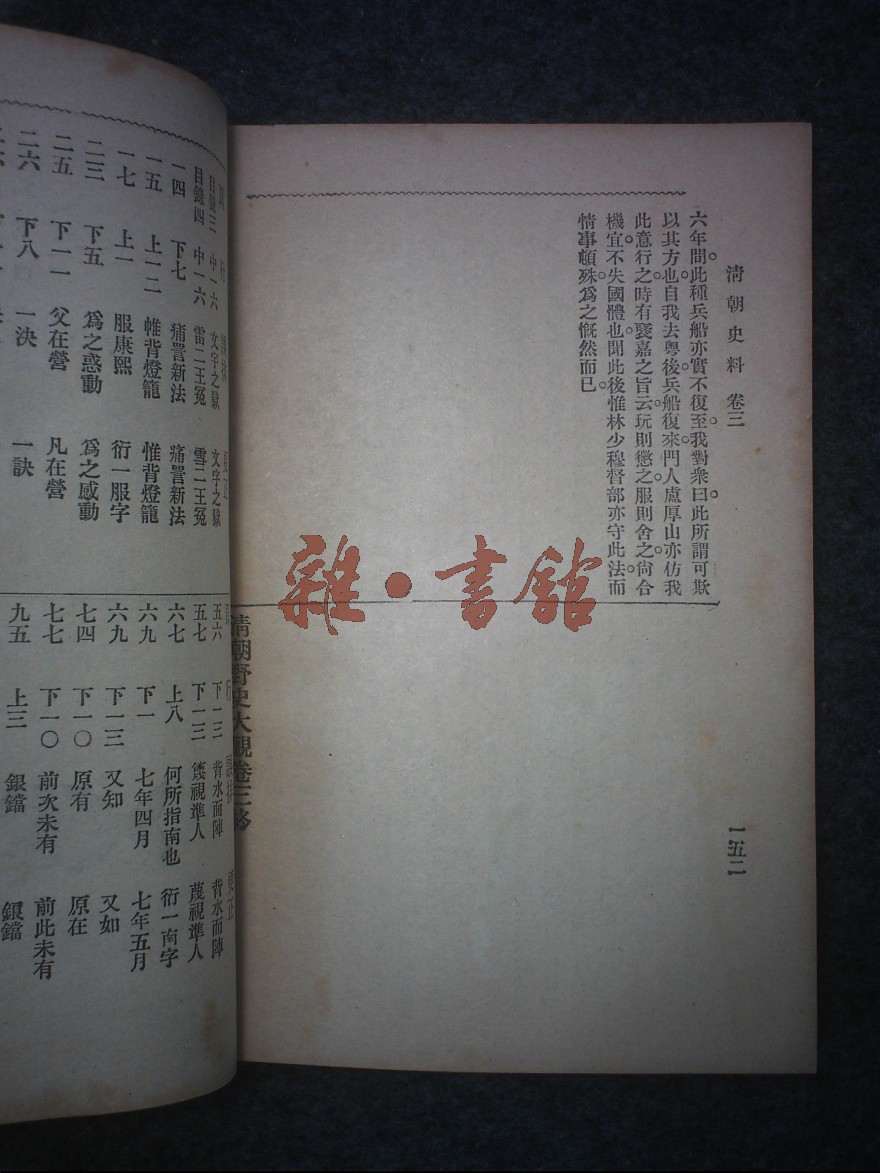 清朝史料 卷三
一五二
六年間。此種兵船亦實不復至。我對衆曰。此所謂可欺
以其方也。自我去粤後。兵船復來。門人盧厚山亦仿我
此意行之。時有褒嘉之旨云。玩則懲之。服則舍之。尙合
機宜。不失國體也。聞此後惟林少穆督部亦守此法。而
情事頓殊。爲之慨然而已。
清朝野史大觀卷三終
雜·書館
目錄三 中一六 文字之獄 文字之獄
目錄四 中一六 雷二王冤 雪二王冤
一四 下七 痡詈新法 痛詈新法
一五 上一二 帷背燈籠 惟背燈籠
一七 上一 服康熙 衍一服字
二三 下五 爲之惑動 爲之感動
二五 下一一 父在營 凡在營
二六 下八 一決 一訣
五六 下一三 背水而陣 背水而陣
五七 下一三 篾視準人 蔑視準人
六七 上八 何所指南也 衍一南字
六九 下一 七年四月 七年五月
六九 下一三 又知 又如
七四 下一〇 原有 原在
七七 下一〇 前次未有 前此未有
九五 上三 銀鐺 鋃鐺